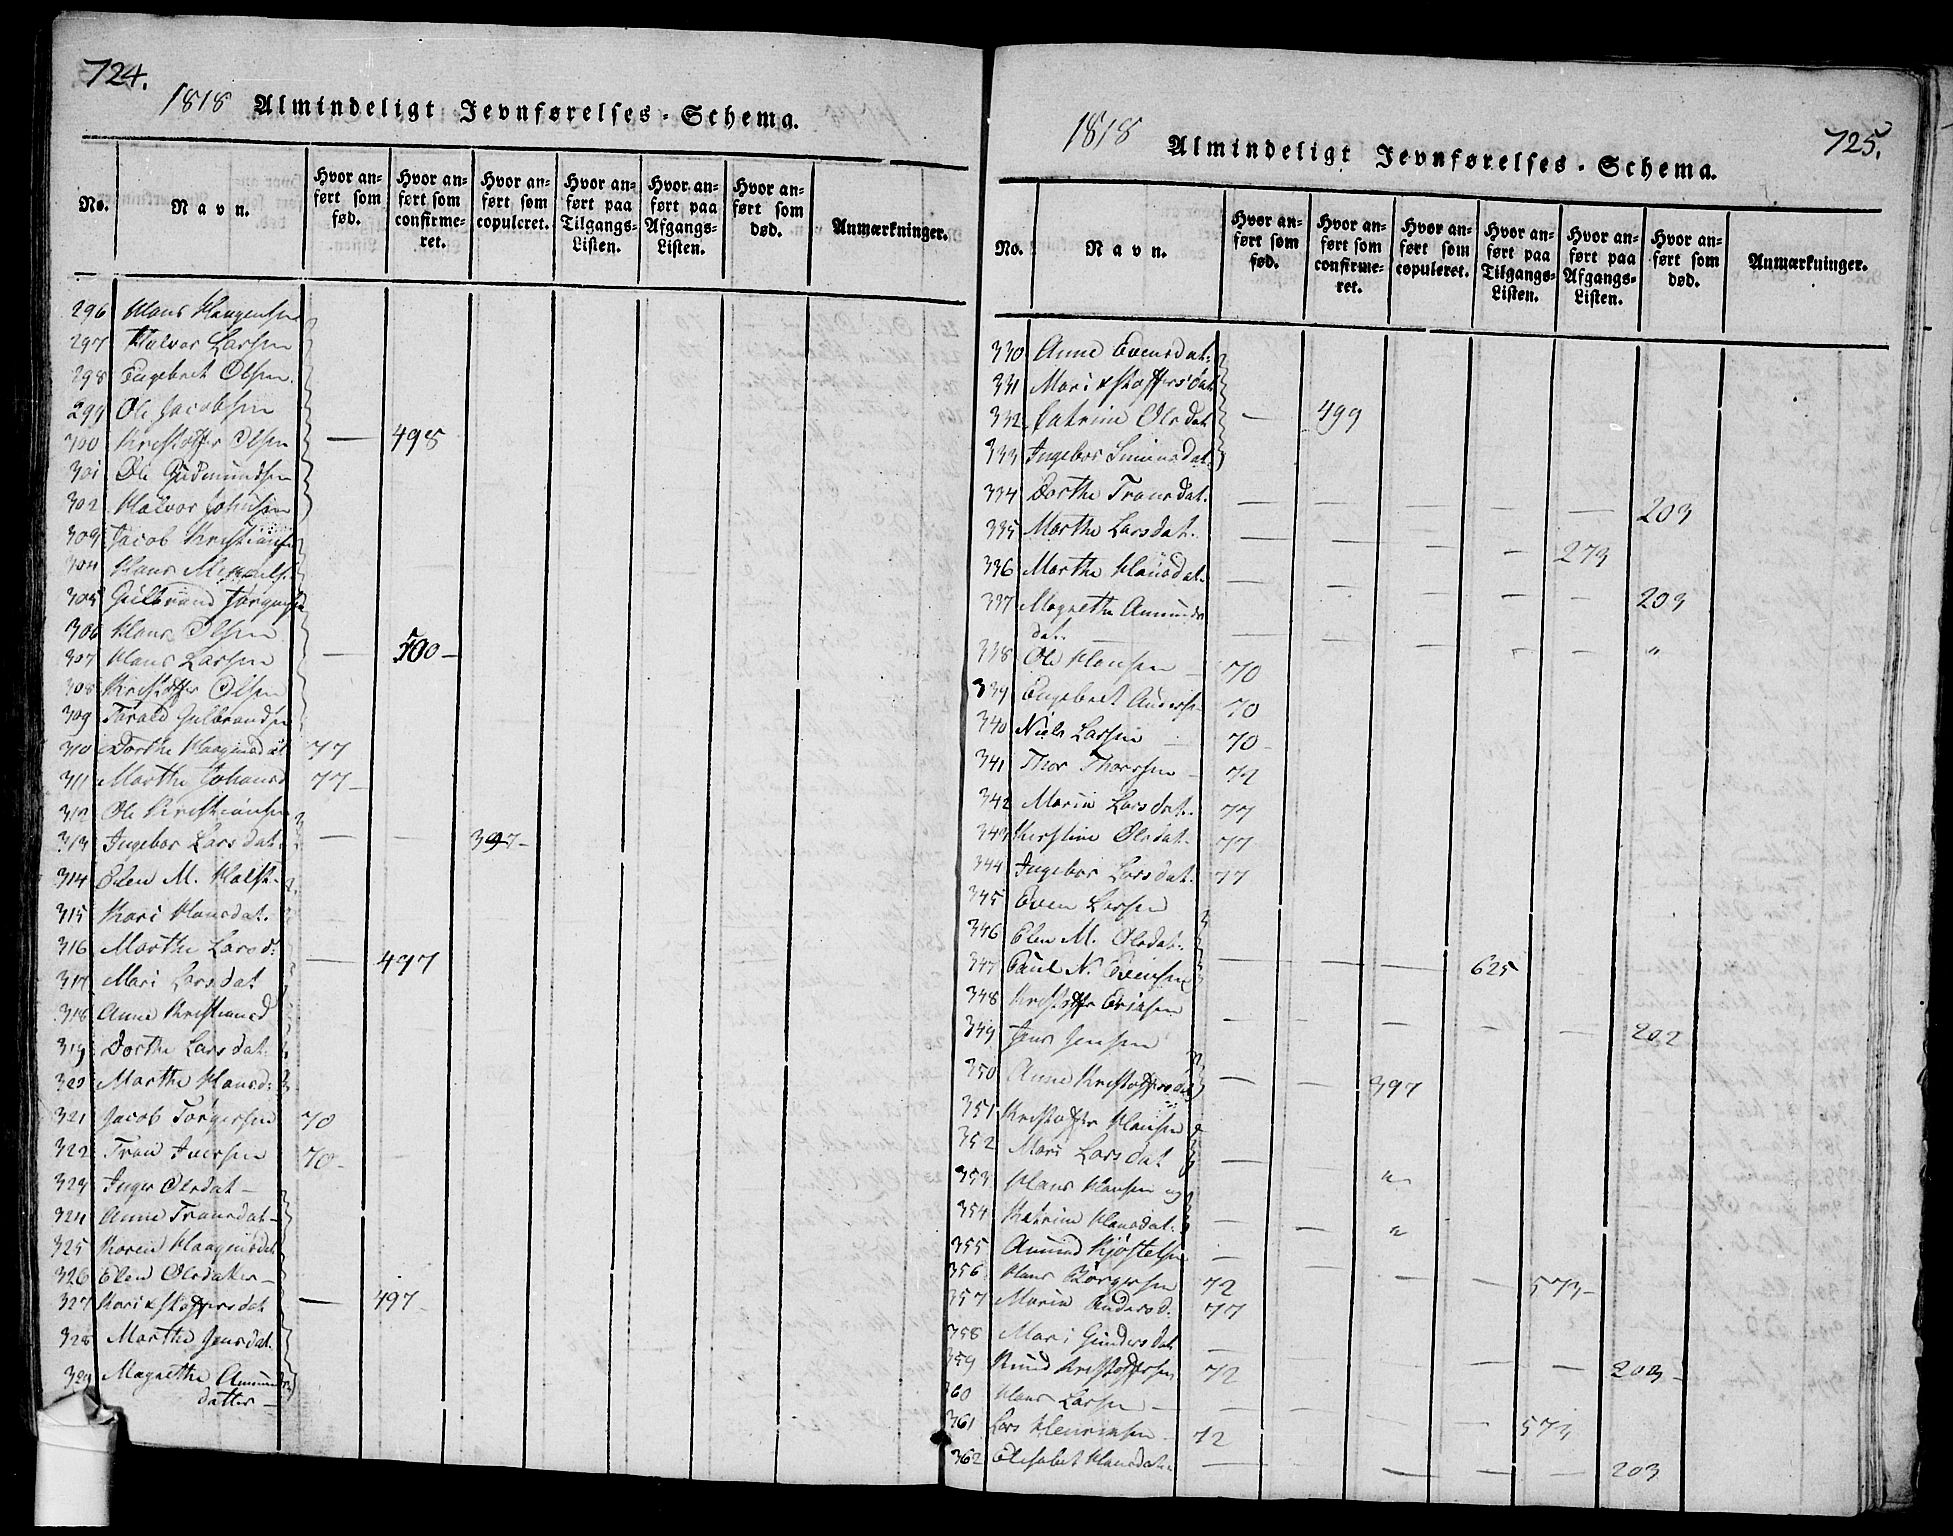 724.
1818 Almindeligt Jevnførelses-Schema.
No.
Navn.
Hvor an-
ført som
fød.
Hvor an-
ført som
confirme-
ret.
Hvor an-
ført søm
copuleret.
Hvor an-
ført paa
Tilgangs-
Listen.
Hvor an-
ført paa
Afgangs-
Listen.
Hvor an-
ført som
død.
Anmærkninger.
296 Hans Haagensen
297 Halvor Larsen
298 Engebret Olsen.
299 Ole Jacobsen
300 Kristoffer Olsen — 498
301 Ole Gudmundsen
302 Halvor Johnsen
303 Jacob Kristians
304 Hans
305 Gulbrand
306 Hans Olsen
307 Hans Larsen — 500 —
308 Kristoffer Olsen
309 Tarald Gulbrandsen
310 Dorthe Haagensdat 77
311 Marthe Johansd 77 —
312 Ole Kristiansen
313 Ingebor Larsdat. — — 397 —
314 Elen M. Holst.
315 Kari Hansdat.
316 Marthe Larsd: — 497
317 Mari Larsdat
318 Anne Kristiansd
319 Dorthe Larsdat.
320 Marthe Hansd:
321 Jacob Torgersen 70
322 Tron Iversen 70 —
323 Inger Olsdat —
324 Anne Tronsdat —
325 Karen Haagensdat
326 Elen Olsdatter —
327 Kari Kstoffersdat — 497
328 Marthe Jensdat.
329 Magrethe Amunds
datter —
1818 Almindeligt Jevnførelses-Schema.
725.
No.
Navn.
Hvor an-
ført søm
fød.
Hvor an-
ført som
confirme-
ret.
Hvor an-
ført som
copuleret.
Hvor an-
ført paa
Tilgangs-
Listen.
Hvor an-
ført paa
Afgangs-
Listen.
Hvor an-
ført som
død.
Anmærkninger.
330 Anne Evensdat:
331 Mari Kstoffersdat
332 Catrine Olsdat — 499
333 Ingebor Simensdat
334 Dorthe Tronsdat. — — — — — 203
335 Marthe Larsdat. — — — — 273
336 Marthe Hansdat. — — — — — 203
337 Magrethe Amunds
dat. — — — — — "
338 Ole Hansen — 70
339 Engebret Andersen 70
340 Niels Larsen — 70 —
341 Thor Thorsen — 72
342 Marie Larsdat. 77
343 Kirstine Olsdat. 77
344 Ingebor Larsdat. 77
345 Even Larsen
346 Elen M. Olsdat.
347 Paul N. Evensen — — — 625
348 Kristoffer Ericsen — — — — — 202
349 Jens Jensen
350 Anne Kristoffersdat — — 397
351 Kristoffer Hansen
352 Mari Larsdat — "
353 Hans Hansen og
354 Katrine Hansdat. — — "
355 Amund Kjøstelsen —
356 Hans Børgersen 72 — — — 573 —
357 Marie Andersd. 77
358 Mari Gundersdat — — — — — 203 —
359 Knud Kristoffersen 72
360 Hans Larsen — — — — — 573
361 Lars Henriksen 72
362 Elisabet Hansdatter — — — — — 203